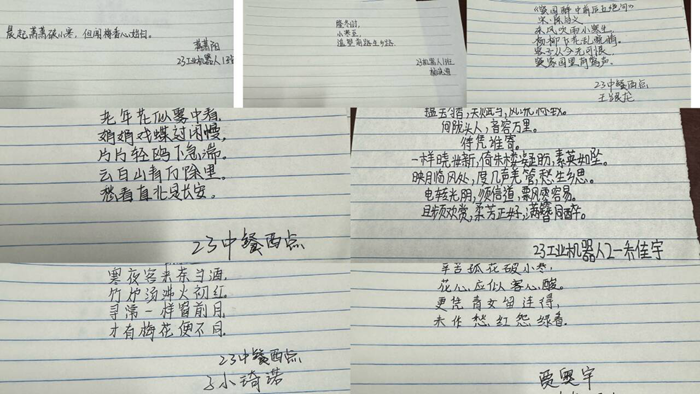 晨起萧萧破小寒，但闻梅香人
23工业机器人1班
隆冬时，
小寒至，
23机器人1班
宋·陈
东风吹雨小寒生，
杨柳飞花乱晚晴。
客子从今无可恨，
窦家园里有莺声。
23中餐西点
老年花似雾中看。
娟娟戏蝶过闲幔，
片片轻鸥下急湍。
云白山青万余里，
愁看直北是长安。
23中餐西点
何陇头人，音容万里。
待凭谁寄。
一样晓妆新，倚朱楼凝盼，素英如坠。
映月临风处，度几声羌管，愁生乡思。
电转光阴，须信道，飘零容易。
且频欢赏，柔芳正好，满簪同醉。
23工业机器人2—朱佳宇
寒夜客来茶当酒，
竹炉汤沸火初红。
寻常一样窗前月，
才有梅花便不同。
23中餐西点
王小琦诺
辛苦孤花破小寒，
花心应似客心酸。
更凭青女留连得，
未作愁红怨绿看。
贾奥宇